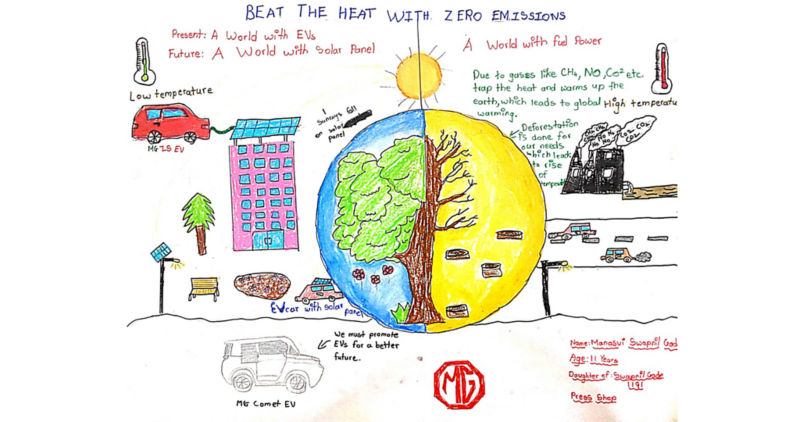 BEAT THE HEAT WITH ZERO EMISSIONS
Present: A World with EVs
Future: A World with Solar Panel
A World with fuel Power
Low temperature
MG ZS EV
Sunrays fall
on solar
panel
Due to gases like CH4, NO, CO2 etc.
trap the heat and warms up the
earth, which leads to global
warming.
High temperatu
Deforestation
is done for
our needs
which leads
to rise
of
CO2 CO2
CO2
EV car with solar panel
We must promote
EVs for a better
future.
MG Comet EV
MG
Name: Manasvi Swapnil Gode
Age: 11 Years
Daughter of: Swapnil Gode
1191
Press Shop